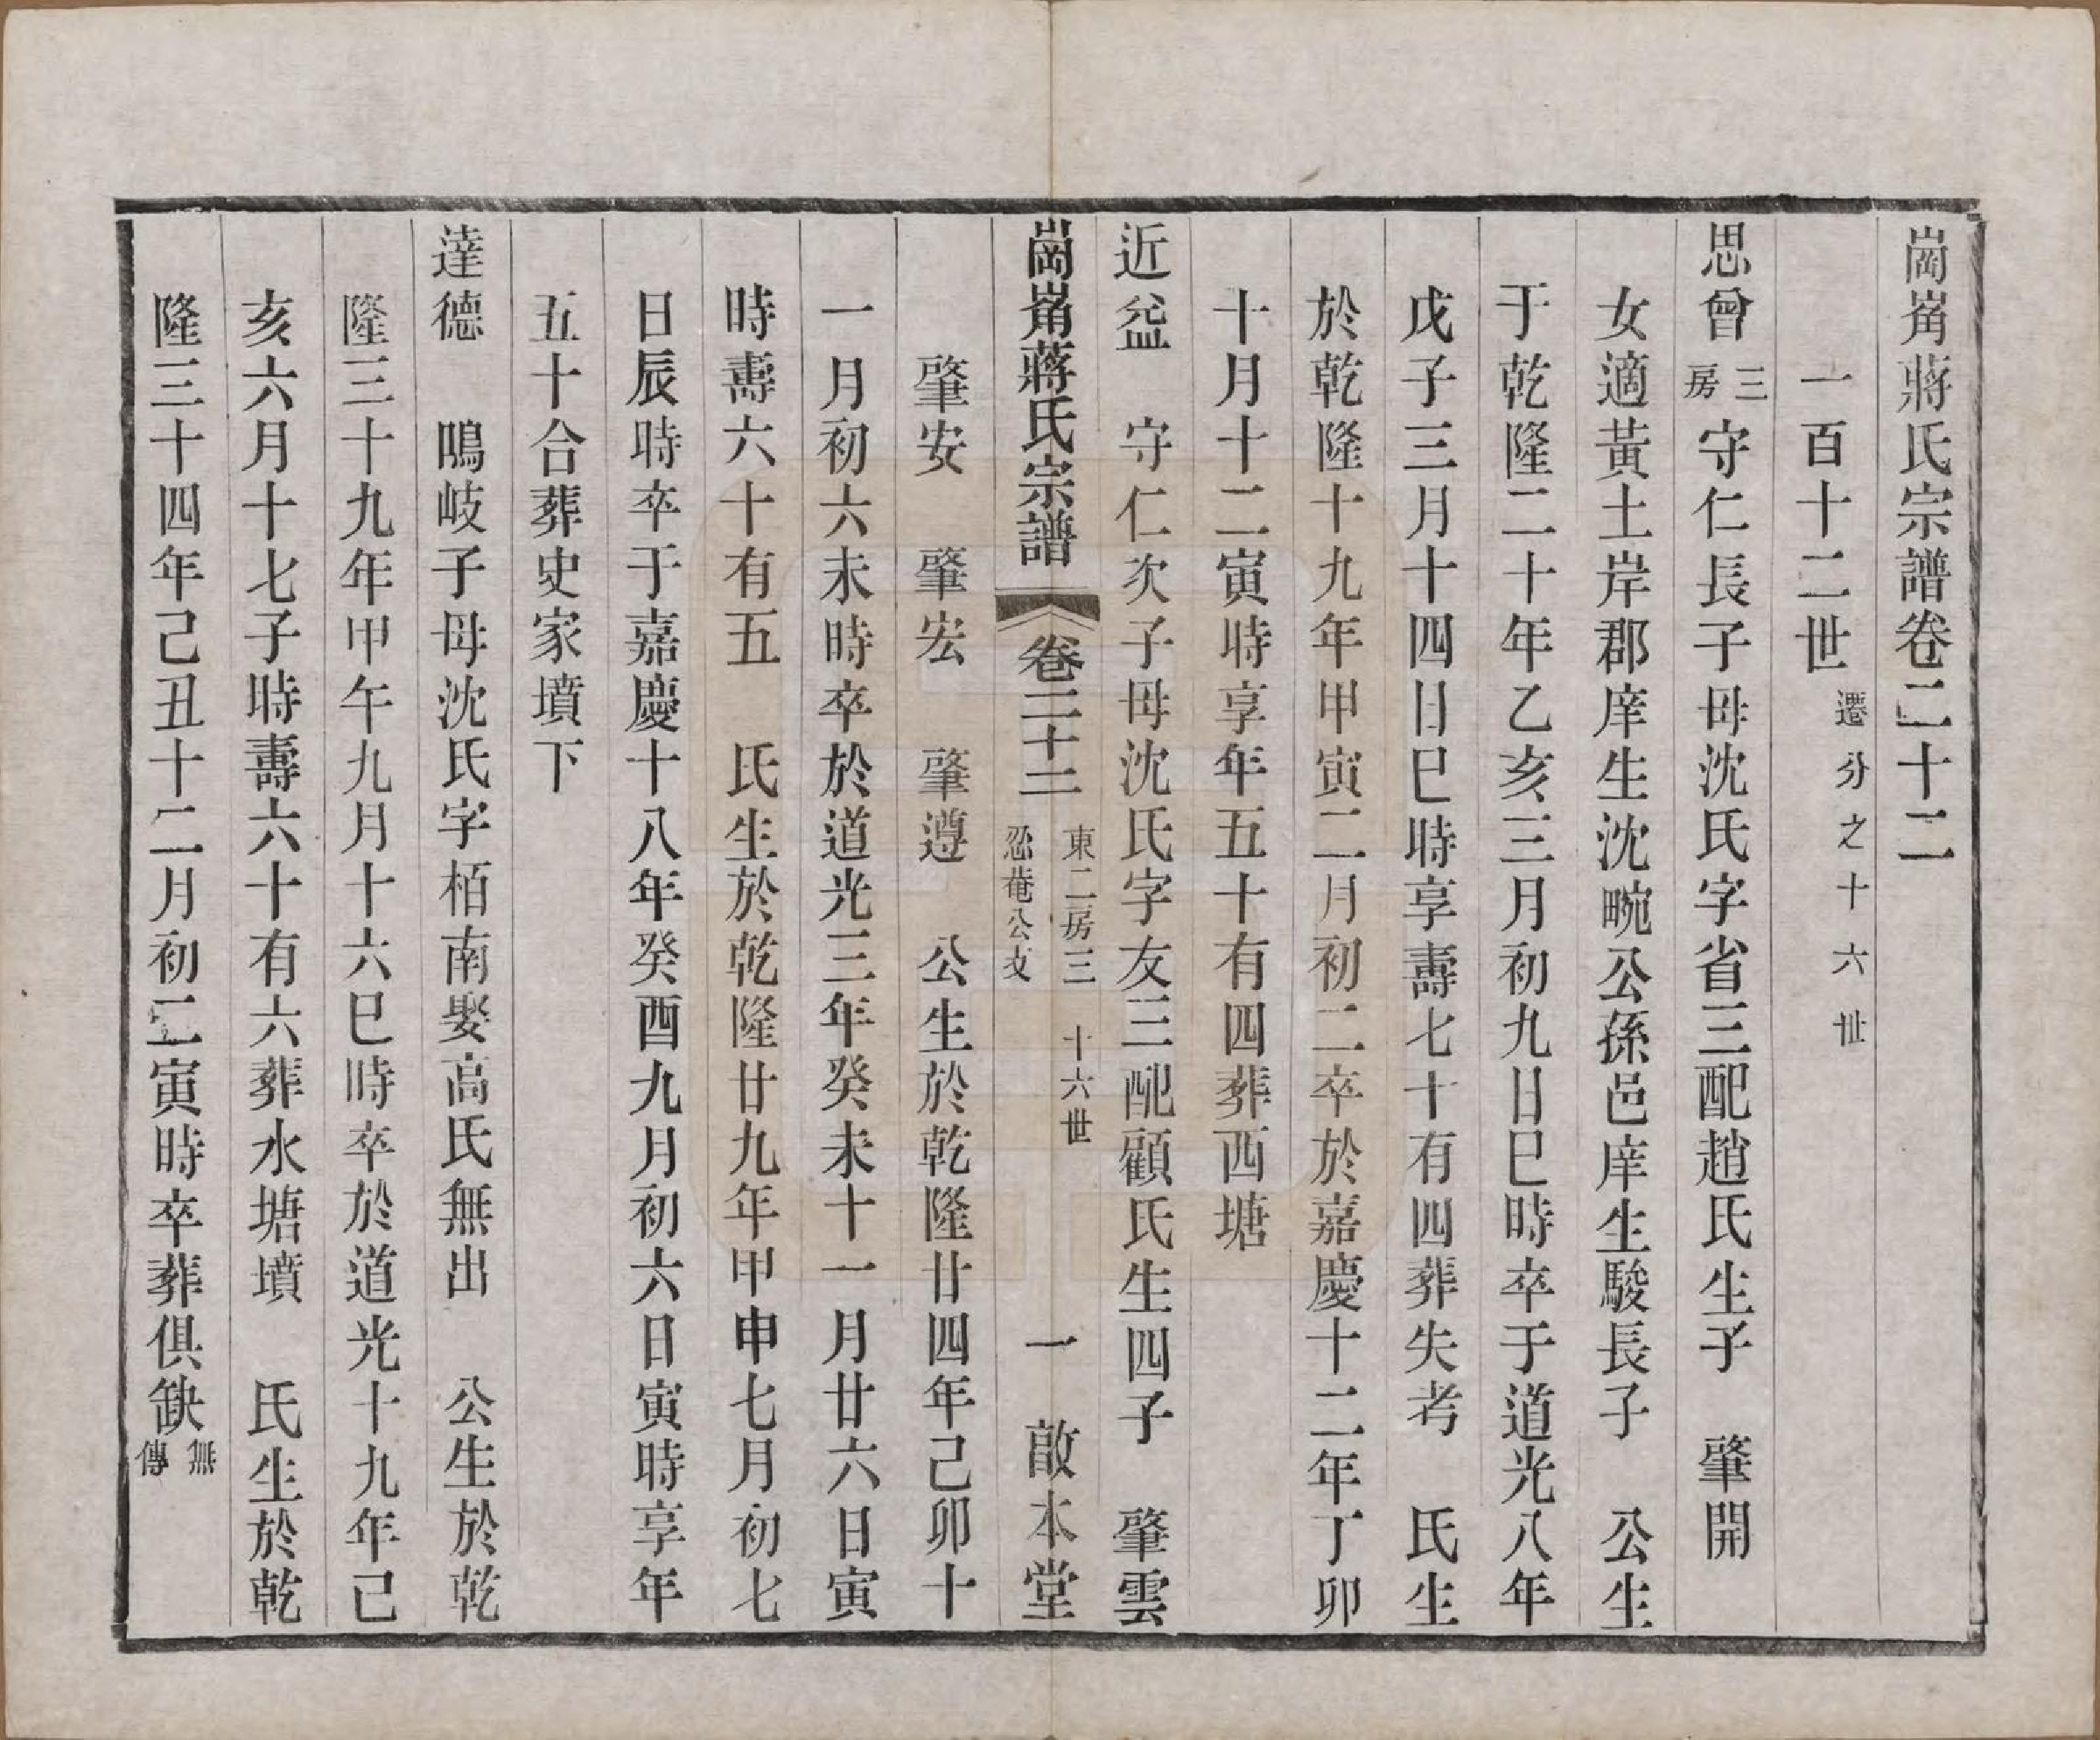 崗崗蔣氏宗譜卷二十二
一百十二世遷分之十六世
思曾三房守仁長子母沈氏字省三配趙氏生子　肇開
女適黃土岸郡庠生沈畹公孫邑庠生駿長子　公生
于乾隆二十年乙亥三月初九日巳時卒于道光八年
戊子三月十四日巳時享壽七十有四葬失考　氏生
於乾隆十九年甲寅二月初二卒於嘉慶十二年丁卯
十月十二寅時享年五十有四葬西塘
近盆　守仁次子母沈氏字友三配顧氏生四子　肇雲
崗崗蔣氏宗譜　卷二十二　東二房三忍菴公支　十六世　一　啟本堂
肇安　肇宏　肇遵　公生於乾隆廿四年己卯十
一月初六未時卒於道光三年癸未十一月廿六日寅
時壽六十有五　氏生於乾隆廿九年甲申七月初七
日辰時卒于嘉慶十八年癸酉九月初六日寅時享年
五十合葬史家墳下
達德　鳴岐子母沈氏字栢南娶高氏無出　公生於乾
隆三十九年甲午九月十六巳時卒於道光十九年己
亥六月十七子時壽六十有六葬水塘墳　氏生於乾
隆三十四年己丑十二月初二寅時卒葬俱缺無傳